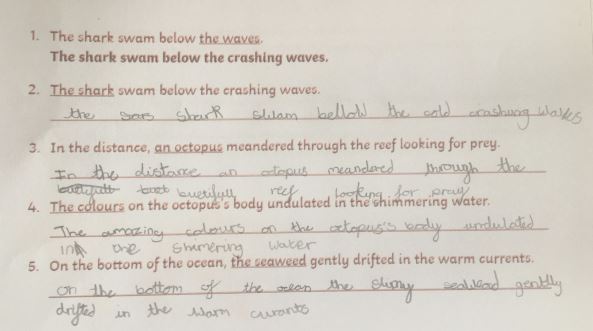 1. The shark swam below the waves.
The shark swam below the crashing waves.
2. The shark swam below the crashing waves.
the shark bellow the cold crashung
3. In the distance, an octopus meandered through the reef looking for prey.
In the distance an octopus meandered through the
reef looking for pray
4. The colours on the octopus's body undulated in the shimmering water.
The amazing colours on the octopus's body undulated
in the shimering water
5. On the bottom of the ocean, the seaweed gently drifted in the warm currents.
on the bottom of the ocean the slimy gently
drifted in the warm curants